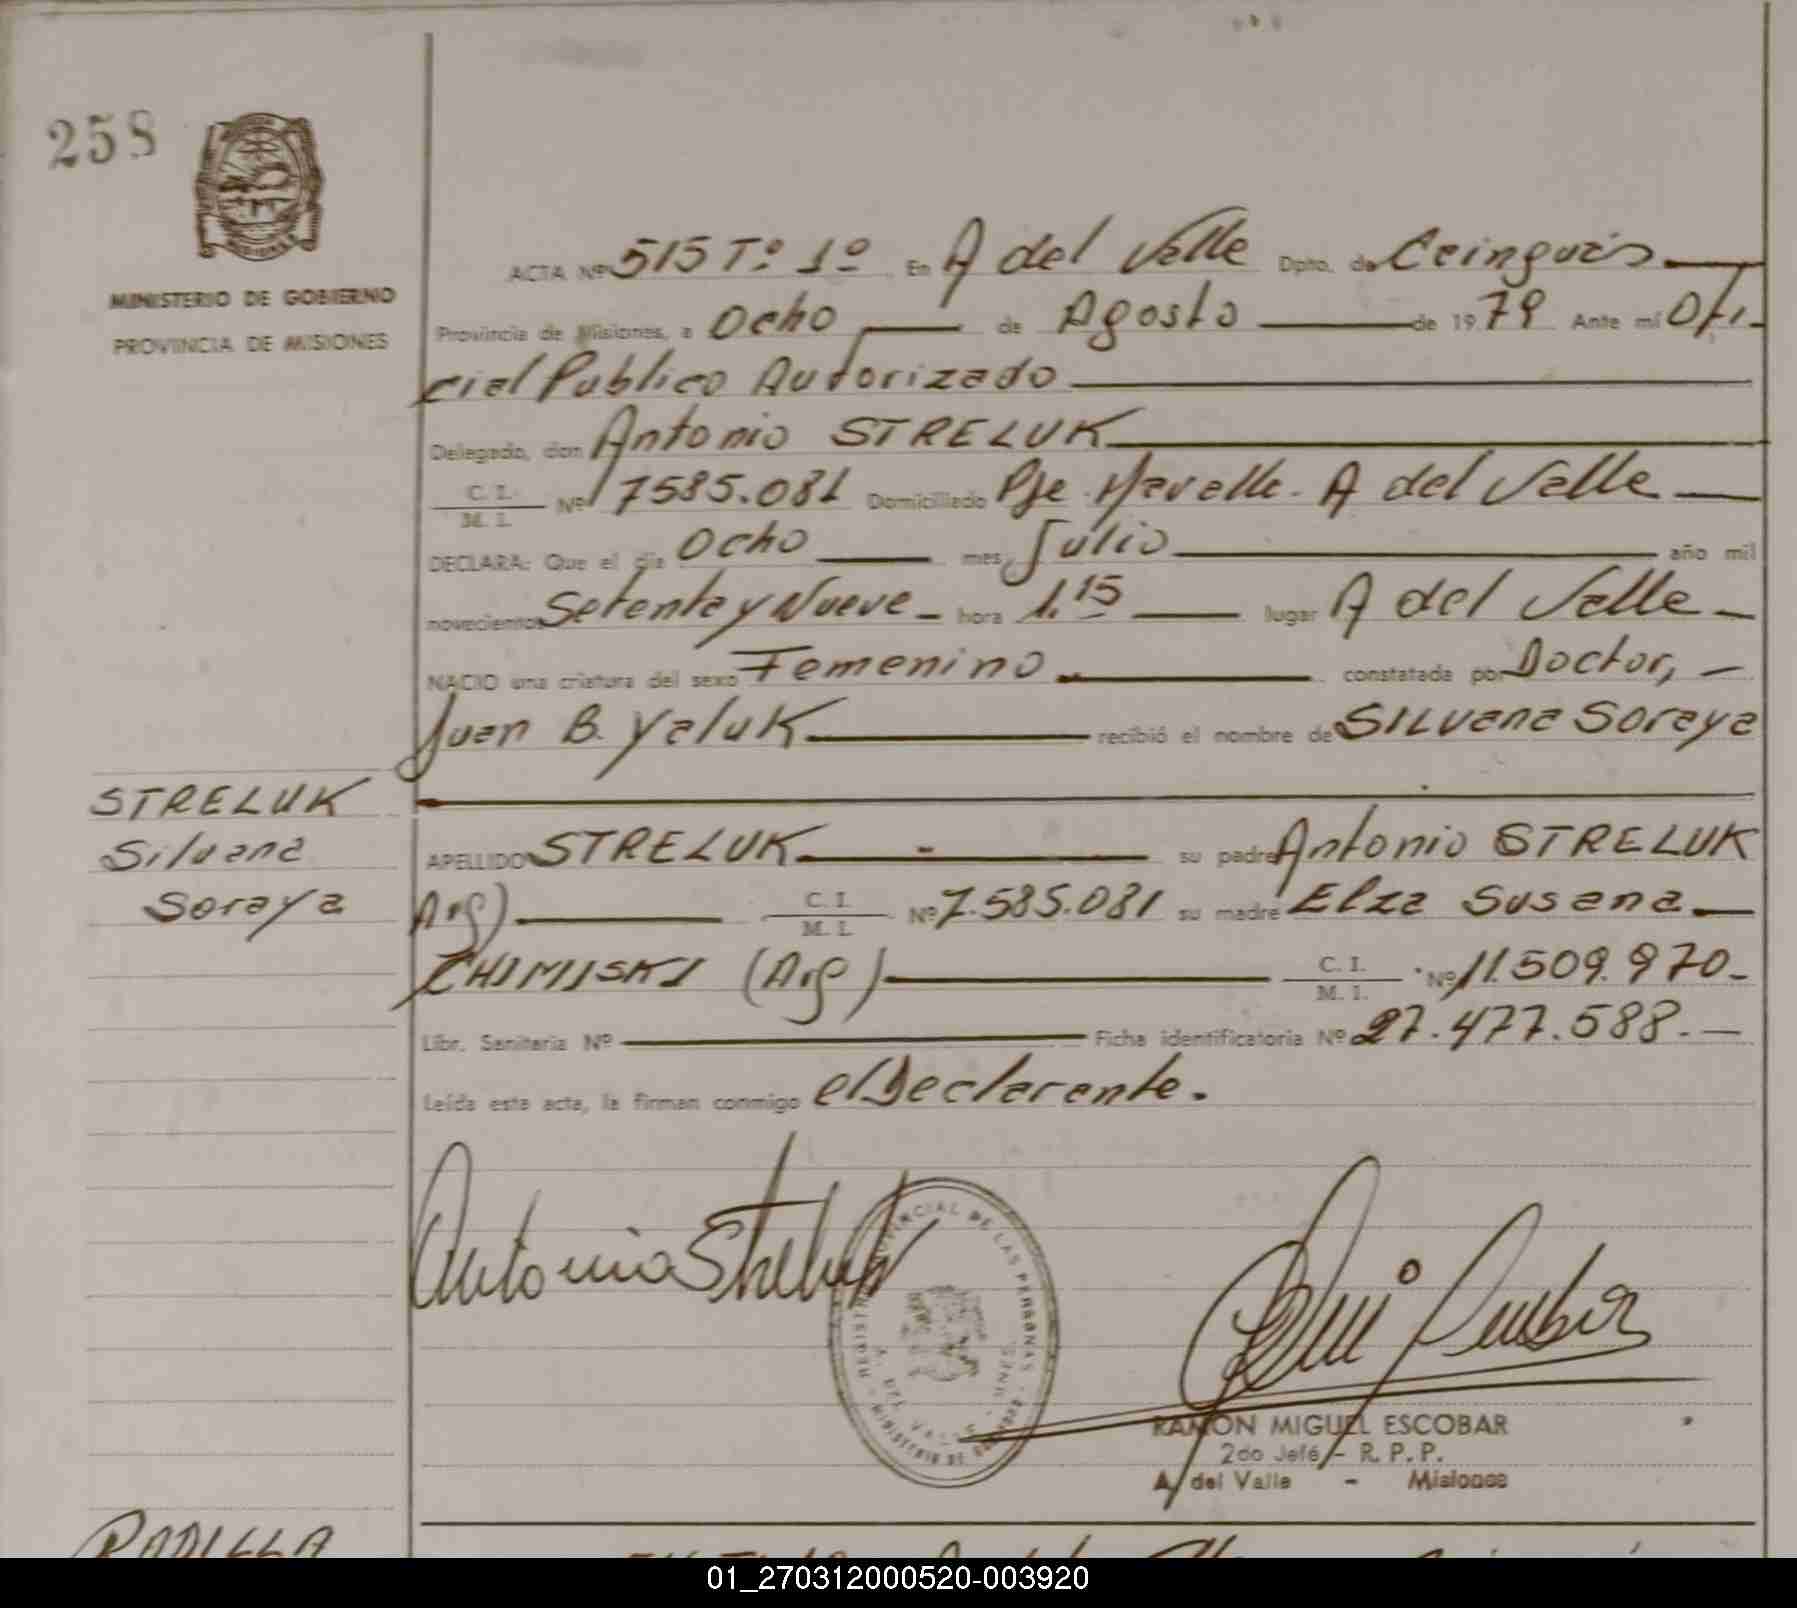 258
MINISTERIO DE GOBIERNO
PROVINCIA DE MISIONES
ACTA Nº 515 Tº 1º En A del Valle Dpto. de Cainguás
Provincia de Misiones, a Ocho de Agosto de 1979 Ante mí Ofi-
cial Publico Autorizado
Delegado, don Antonio STRELUK
C. I. / M. I. Nº 7585.081 Domiciliado Pje. A del Valle
DECLARA: Que el día Ocho mes Julio año mil
novecientos Setenta y Nueve - hora 1.15 lugar A del Valle -
NACIO una criatura del sexo Femenino constatada por Doctor, -
Juan B. Yaluk recibió el nombre de SILvana Soraya
STRELUK
Silvana
Soraya
APELLIDO STRELUK su padre Antonio STRELUK
Arg) C. I. / M. I. Nº 7.585.081 su madre Elza Susana
CHIMISKI (Arg) C. I. / M. I. Nº 11.509.970-
Libr. Sanitaria Nº Ficha identificatoria Nº 27.477.588. -
Leída esta acta, la firman conmigo el Declarante.
Antonio Streluk
REGISTRO PROVINCIAL DE LAS PERSONAS
MINISTERIO DE
A. DEL VALLE
RAMON MIGUEL ESCOBAR
2do Jefe - R. P. P.
A. del Valle - Misiones
PADILLA
01_270312000520-003920